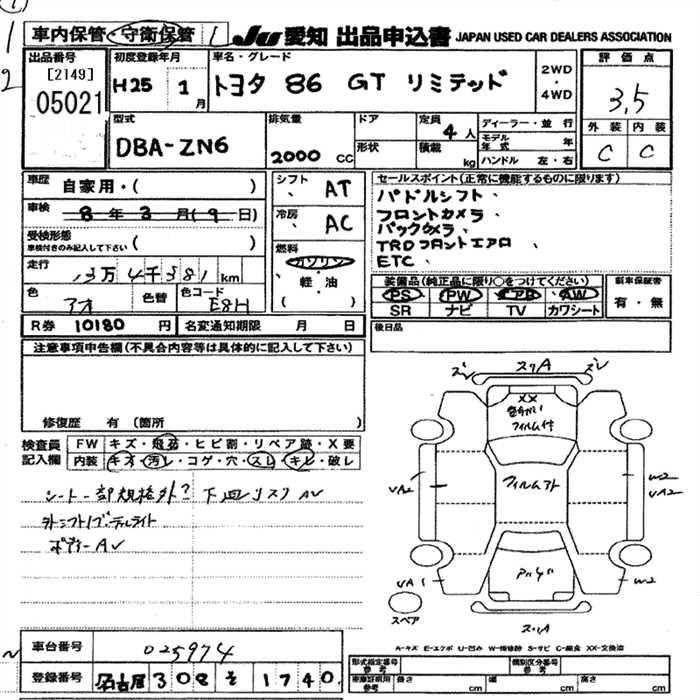 車内保管・守衛保管
JU 愛知 出品申込書 JAPAN USED CAR DEALERS ASSOCIATION
出品番号
[2149]
05021
初度登録年月
H25年 1月
車名・グレード
トヨタ 86 GT リミテッド
2WD・4WD
評価点
3,5
外装 内装
C C
型式
DBA-ZN6
排気量
2000 CC
ドア
形状
定員 4人
積載 kg
ディーラー・並行
モデル年式 年
ハンドル 左・右
車歴
自家用・( )
車検
8年3月(9日)
受検形態
車検付きのみ記入して下さい ( )
走行
13万4千381km
色
アオ
色替
色コード
E8H
シフト AT
冷房 AC
燃料
ガソリン
軽・油
( )
セールスポイント(正常に機能するものに限ります)
パドルシフト、
フロントカメラ、
バックカメラ、
TRDフロントエアロ、
ETC、
装備品(純正品に限り○をつけてください)
PS PW エアB AW
SR ナビ TV カワシート
新車保証書
有・無
R券 10180円
名変通知期限 月 日
後日品
注意事項申告欄(不具合内容等は具体的に記入して下さい)
修復歴 有(箇所 )
検査員記入欄
FW キズ・飛石・ヒビ割・リペア跡・X要
内装 キズ・汚レ・コゲ・穴・スレ・キレ・破レ
シート一部規格外? 下回リスク AV
ボディー AV
ズレ スリA ズレ
XX
フィルム付
フィルムフト
VA2
W2
VA2
VA1
W2
スリA
スペア
A-キズ E-エクボ U-凹み W-補修跡 S-サビ C-腐食 XX-交換済
車台番号
025974
登録番号
名古屋 308 そ 1740
形式指定番号 参考
類別区分番号 参考
車庫証明用 参考 長さ cm 幅 cm 高さ cm